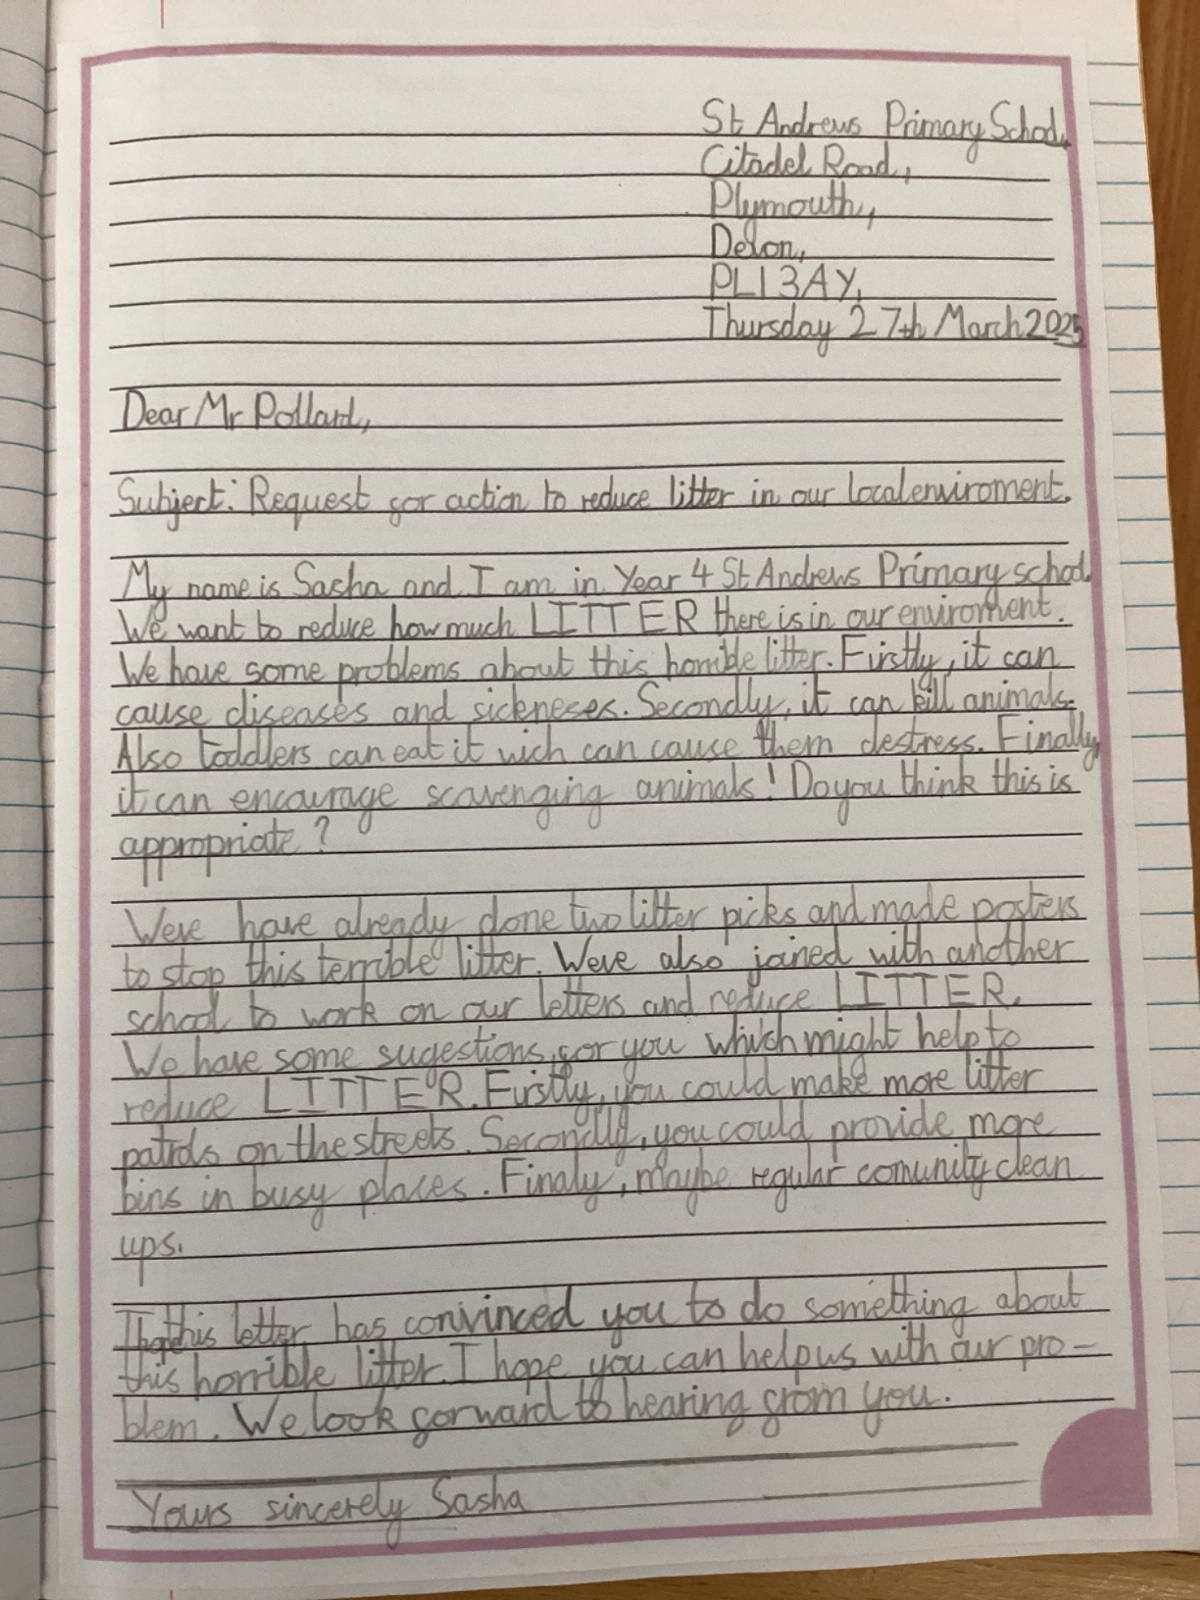 St Andrews Primary School,
Citadel Road,
Plymouth,
Devon,
PL1 3AY,
Thursday 27th March 2025
Dear Mr Pollard,
Subject: Request for action to reduce litter in our local enwiroment.
My name is Sasha and I am in Year 4 St Andrews Primary school.
We want to reduce how much LITTER there is in our enviroment.
We have some problems about this horrible litter. Firstly, it can
cause diseases and sickneses. Secondly, it can kill animals.
Also toddlers can eat it wich can cause them destress. Finally,
it can encourage scavenging animals! Do you think this is
appropriate?
Weve have already done two litter picks and made posters
to stop this terrible litter. Weve also joined with another
school to work on our letters and reduce LITTER.
We have some sugestions for you which might help to
reduce LITTER. Firstly, you could make more litter
patrols on the streets. Secondly, you could provide more
bins in busy places. Finaly, maybe regular comunity clean
ups.
I hope this letter has convinced you to do something about
this horrible litter. I hope you can help us with our pro-
blem. We look forward to hearing from you.
Yours sincerely Sasha